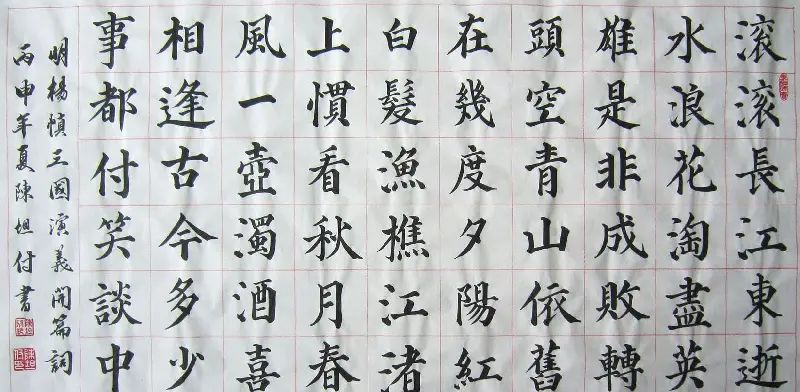 滚滚長江東逝
水浪花淘盡英
雄是非成敗轉
頭空青山依舊
在幾度夕陽紅
白髮漁樵江渚
上慣看秋月春
風一壺濁酒喜
相逢古今多少
事都付笑談中
明楊慎三國演義開篇詞
丙申年夏陳坦付書